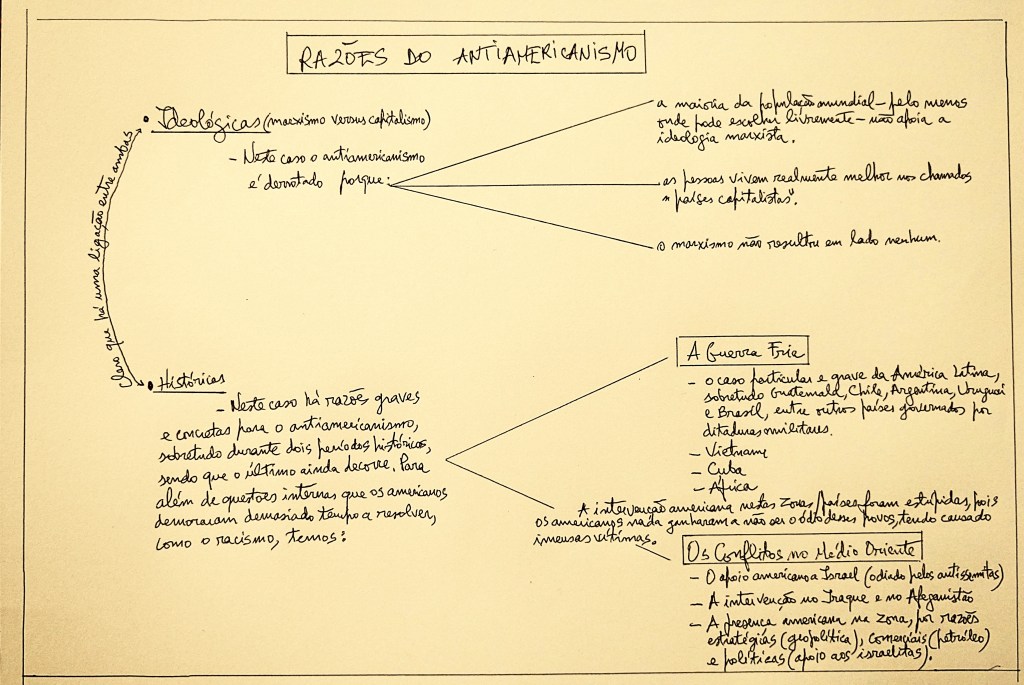 RAZÕES DO ANTIAMERICANISMO
• Ideológicas (marxismo versus capitalismo)
– Neste caso o antiamericanismo
é derrotado porque:
a maioria da população mundial – pelo menos
onde pode escolher livremente – não apoia a
ideologia marxista.
as pessoas vivem realmente melhor nos chamados
"países capitalistas".
o marxismo não resultou em lado nenhum.
Claro que há uma ligação entre ambas
• Históricas
– Neste caso há razões graves
e concretas para o antiamericanismo,
sobretudo durante dois períodos históricos,
sendo que o último ainda decorre. Para
além de questões internas que os americanos
demoraram demasiado tempo a resolver,
como o racismo, temos:
A Guerra Fria
– O caso particular e grave da América Latina,
sobretudo Guatemala, Chile, Argentina, Uruguai
e Brasil, entre outros países governados por
ditaduras militares.
– Vietname
– Cuba
– África
A intervenção americana nestas zonas/países foram estúpidas, pois
os americanos nada ganharam a não ser o ódio desses povos, tendo causado
imensas vítimas.
Os Conflitos no Médio Oriente
– O apoio americano a Israel (odiado pelos antissemitas)
– A intervenção no Iraque e no Afeganistão
– A presença americana na zona, por razões
estratégias (geopolítica), comerciais (petróleo)
e políticas (apoio aos israelitas).